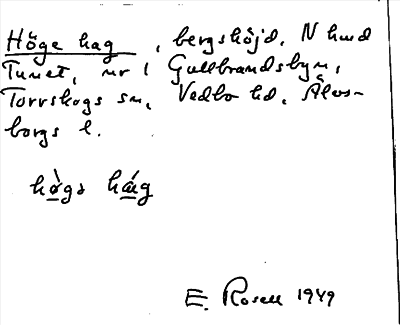 Höge hag, bergshöjd. N hmd
Tunet, nr 1 Gullbrandsbyn,
Torrskogs sn, Vedbo hd. Älvs-
borgs l.
E. Rosell 1949